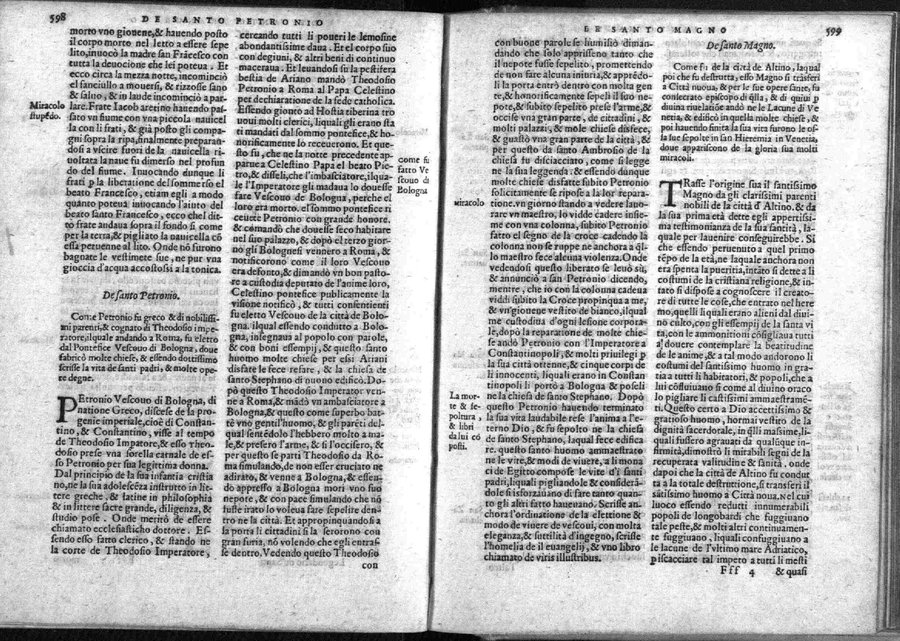 598
DE SANTO PETRONIO
morto vno giouene,& hauendo posto
il corpo morto nel letto a essere sepe
lito,inuocò la madre san Frãcesco con
tutta la deuocione che lei poteua. Et
ecco circa la mezza notte, incominciò
el fanciullo a mouersi, & rizzosse sano
& saluo, & in laude incominciò a par-
lare. Frate Iacob aretino hauendo pas-
sato vn fiume con vna piccola nauicel
la con li frati, & già posto gli compa-
gni sopra la ripa,finalmente preparan-
dosi a vscire fuori de la nauicella ri-
uoltata la naue fu dimerso nel profun
do del fiume. Inuocando dunque li
frati p la liberatione del sommerso el
beato Francesco, etiam egli a modo
quanto poteua inuocando l'aiuto del
beato santo Francesco, ecco chel dit
to frate andaua sopra il fondo si come
per la terra,& pigliato la nauicella cõ
essa peruenne al lito. Onde nõ furono
bagnate le vestimete sue, ne pur vna
gioccia d'acqua accostossi a la tonica.
Miracolo
stupẽdo.
De santo Petronio.
Come Petronio fu greco & di nobilissi
mi parenti,& cognato di Theodosio impe-
ratore,ilquale andando a Roma, fu eletto
dal Pontefice Vescouo di Bologna, doue
fabricò molte chiese, & essendo dottissimo
scrisse la vita de santi padri, & molte ope-
re degne.
Petronio Vescouo di Bologna, di
natione Greco, discese de la pro-
genie imperiale,cioè di Constan-
tino, & Constantino, visse al tempo
de Theodosio Impatore,& esso theo-
dosio prese vna sorella carnale de es-
so Petronio per sua legittima donna.
Dal principio de la sua infantia cristia
no,ne la sua adolescẽza instrutto in lit-
tere greche, & latine in philosophia
& in littere sacre grande, diligenza, &
studio pose. Onde meritò de essere
chiamato ecclesiasticho dottore. Es-
sendo esso fatto clerico, & stando ne
la corte de Theodosio Imperatore,
cercando tutti li poueri le lemosine
abondantissime daua. Et el corpo suo
con degiuni, & altri beni di continuo
maceraua. Et leuandosi su la pestifera
bestia de Ariano mandò Theodosio
Petronio a Roma al Papa Celestino
per dechiaratione de la fede catholica.
Essendo gionto ad Hostia tiberina tro
uoui molti clerici, liquali gli erano sta
ti mandati dal sommo pontefice,& ho-
norificamente lo receuerono. Et que
sto fu, che ne la notte precedente ap-
paruea Celestino Papa el beato Pie-
tro,& disseli,che l'imbasciatore,ilqua-
le l'Imperatore gli mãdaua lo douesse
fare Vescouo de Bologna, perche el
loro era morto. el sommo pontefice ri
ceuete Petronio con grande honore.
& comandò che douesse seco habitare
nel suo palazzo, & dopò el terzo gior-
no gli Bolognesi vennero a Roma, &
notificorono come il loro Vescouo
era defonto,& dimandò vn bon pasto-
re a custodia deputato de l'anime loro,
Celestino pontefice publicamente la
visione notificò, & tutti consentienti
fu eletto Vescouo de la città de Bolog-
na. ilqual essendo condutto a Bolo-
gna, insegnaua al popolo con parole,
& con boni essempij, & questo santo
huomo molte chiese per essi Ariani
disfate le fece refare, & la chiesa de
santo Stephano di nuouo edificò. Do-
pò questo Theodosio Imperator ven-
ne a Roma,& mãdò vn ambasciatore a
Bologna,& questo come superbo bat-
tè vno gentil'huomo, & gli parẽti del-
qual sentẽdolo l'hebbero molto a ma-
le,& presero l'arme, & si l'occisero, &
per questo se partì Theodosio da Ro-
ma simulando,de non esser cruciato ne
adirato,& venne a Bologna,& essen-
do appresso a Bologna morì vno suo
nepote, & con pace simulando che nõ
fusse irato lo voleua fare sepelire den-
tro ne la città. Et appropinquandosi a
la porta li cittadini si la serorono con
gran furia, nõ volendo che egli entras-
se dentro. Vedendo questo Theodosio
con
Come fu
fatto Ve
scouo di
Bologna
DE SANTO MAGNO
599
con buone parole se humiliò diman-
dando che solo aprisseno tanto che
il nepote fusse sepelito, promettendo
de non fare alcuna iniuria,& apprẽdo-
li la porta entrò dentro con molta gen
te,& honorificamente sepelì il suo ne-
pote,& subito sepelito prese l'arme,&
occise vna gran parte, de cittadini, &
molti palazzi, & mole chiese disfece,
& guastò vna gran parte de la città, &
per questo da santo Ambrosio de la
chiesa fu discacciato, come se legge
ne la sua leggenda. & essendo dunque
molte chiese disfatte subito Petronio
solicitamente se riposea la lor repara-
tione.vn giorno stando a vedere lauo-
rare vn maestro, lo vidde cadere insie-
me con vna colonna, subito Petronio
fatto el segno de la croce cadendo la
colonna non se ruppe ne anchora a q̃l-
lo maestro fece alcuna violenza. Onde
vedendosi questo liberato se leuò sù,
& annunciò a san Petronio dicendo,
mentre , che io con la colonna cadeua
viddi subito la Croce propinqua a me,
& vn giouene vestito de bianco,ilqual
me custodiua d'ogni lesione corpora-
le,dopò la reparatione de molte chie-
se andò Petronio con l'Imperatore a
Constantinopoli, & molti priuilegi p
la sua città ottenne,& cinque corpi de
li innocenti, liquali erano in Constan
tinopoli li portò a Bologna & poseli
ne la chiesa de santo Stephano. Dopò
questo Petronio hauendo terminato
la sua vita laudabile rese l'anima a l'e-
terno Dio, & fu sepolto ne la chiesa
de santo Stephano, laqual fece edifica
re. questo santo huomo ammaestrato
ne le vite,& modi de viuere, a li mona
ci de Egitto compose le vite d'i santi
padri,liquali pigliandole & considerã-
dole si sforzauano di fare tanto quan-
to gli altri fatto haueuano. Scrisse an-
chora l'ordinatione de la elettione &
modo de viuere de vescoui, con molta
eleganza,& suttilità d'ingegno, scrisse
l'homelia de il euangelij, & vno libro
chiamato de viris illustribus.
miracolo
La mor-
te & se-
poltura,
& libri
da lui cõ
posti.
De santo Magno.
Come fu de la città de Altino, laqual
poi che fu destrutta, esso Magno si trasferì
a Città nuoua, & per le sue opere sante, fu
consecrato episcopo di q̃lla, & di quiui p
diuina reuelatiõe andò ne le Lacune di Ve
netia, & edificò in quella molte chiese, &
poi hauendo finita la sua vita furono le os-
sa sue sepolte in san Hieremia in Venetia,
doue appariscono de la gloria sua molti
miracoli.
TRasse l'origine sua il santissimo
Magno da gli clarissimi parenti
nobili de la città d'Altino. & da
la sua prima età dette egli appertissi-
ma testimonianza de la sua santità, la-
quale per lauenire conseguirebbe. Si
che essendo peruenuto a quel primo
tẽpo de la età,ne laquale anchora non
era spenta la pueritia,intãto si dette a li
costumi de la cristiana religione,& in-
tato si dispose a cognoscere il creato-
re di tutte le cose,che entrato nel here
mo,quelli liquali erano alieni dal diui
no culto,con gli essempij de la santa vi
ta,con le ammonitioni cõsigliaua tutti
a douere contemplare la beatitudine
de le anime,& a tal modo andorono li
costumi del santissimo huomo in gra-
tia a tutti li habitatori, & popoli,che a
lui cõstituiano si come al diuino oraco
lo pigliare li castissimi ammaestramẽ-
ti.Questo certo a Dio accettissimo &
gratioso huomo, hormai vestito de la
dignità sacerdotale, in q̃lli masime,li-
quali fussero agrauati da qualũque in-
firmità,dimostrò li mirabili segni de la
recuperata valitudine & sanità, onde
dapoi che la città de Altino fu condut
ta a la totale destruttione,si transferì il
sãtissimo huomo a Città noua. nel cui
luoco essendo redutti innumerabili
popoli de longobardi che fuggiuano
tale peste,& molti altri continuamen-
te fuggiuano , liquali confuggiuano a
le lacune de l'vltimo mare Adriatico,
p iscacciare tal impeto a tutti li mesti
Fff 4
& quasi